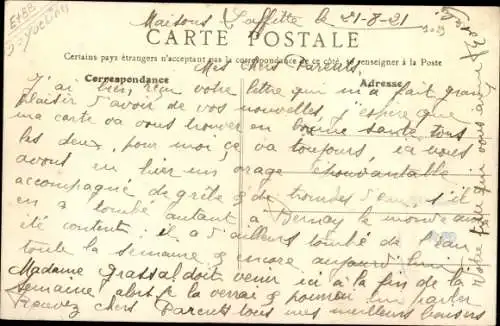 Maisons Laffitte le 21-8-21
CARTE POSTALE
Certains pays étrangers n'acceptant pas la correspondance de ce côté, se renseigner à la Poste
Mes chers Parents,
Correspondance
Adresse
J'ai bien reçu votre lettre qui m'a fait grand
plaisir d'avoir de vos nouvelles, j'espère que
ma carte va vous trouver en bonne santé tous
les deux, pour moi ça va toujours, ici nous
avons eu hier un orage épouvantable
accompagné de grêle & de trombes d'eau, s'il
en a tombé autant à Bernay le monde aura
été content; il a d'ailleurs tombé de l'eau
toute la semaine & encore aujourd'hui
Madame Grassal doit venir ici à la fin de la
semaine alors je la verrai & pourrai lui parler
Recevez chers Parents tous mes meilleurs baisers
Votre fils qui vous aime